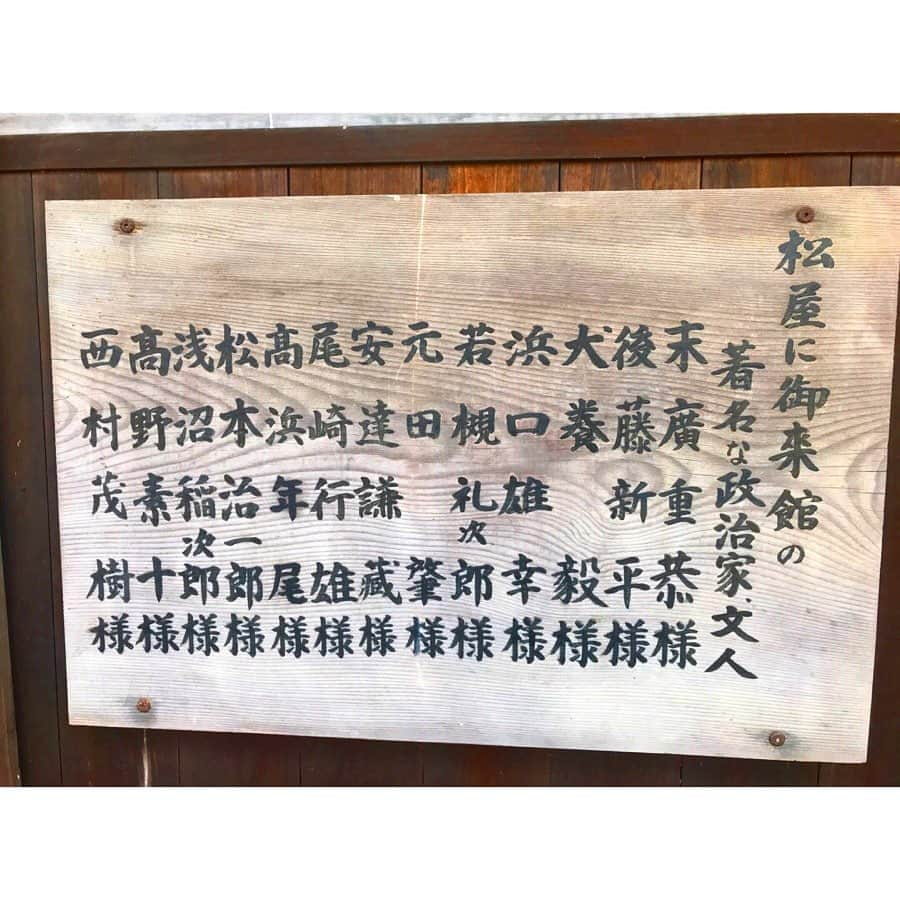 松屋に御来館の
著名な政治家、文人
末廣重恭様
後藤新平様
犬養毅様
浜口雄幸様
若槻礼次郎様
元田肇様
安達謙藏様
尾崎行雄様
高浜年尾様
松本治一郎様
浅沼稲次郎様
高野素十様
西村茂樹様